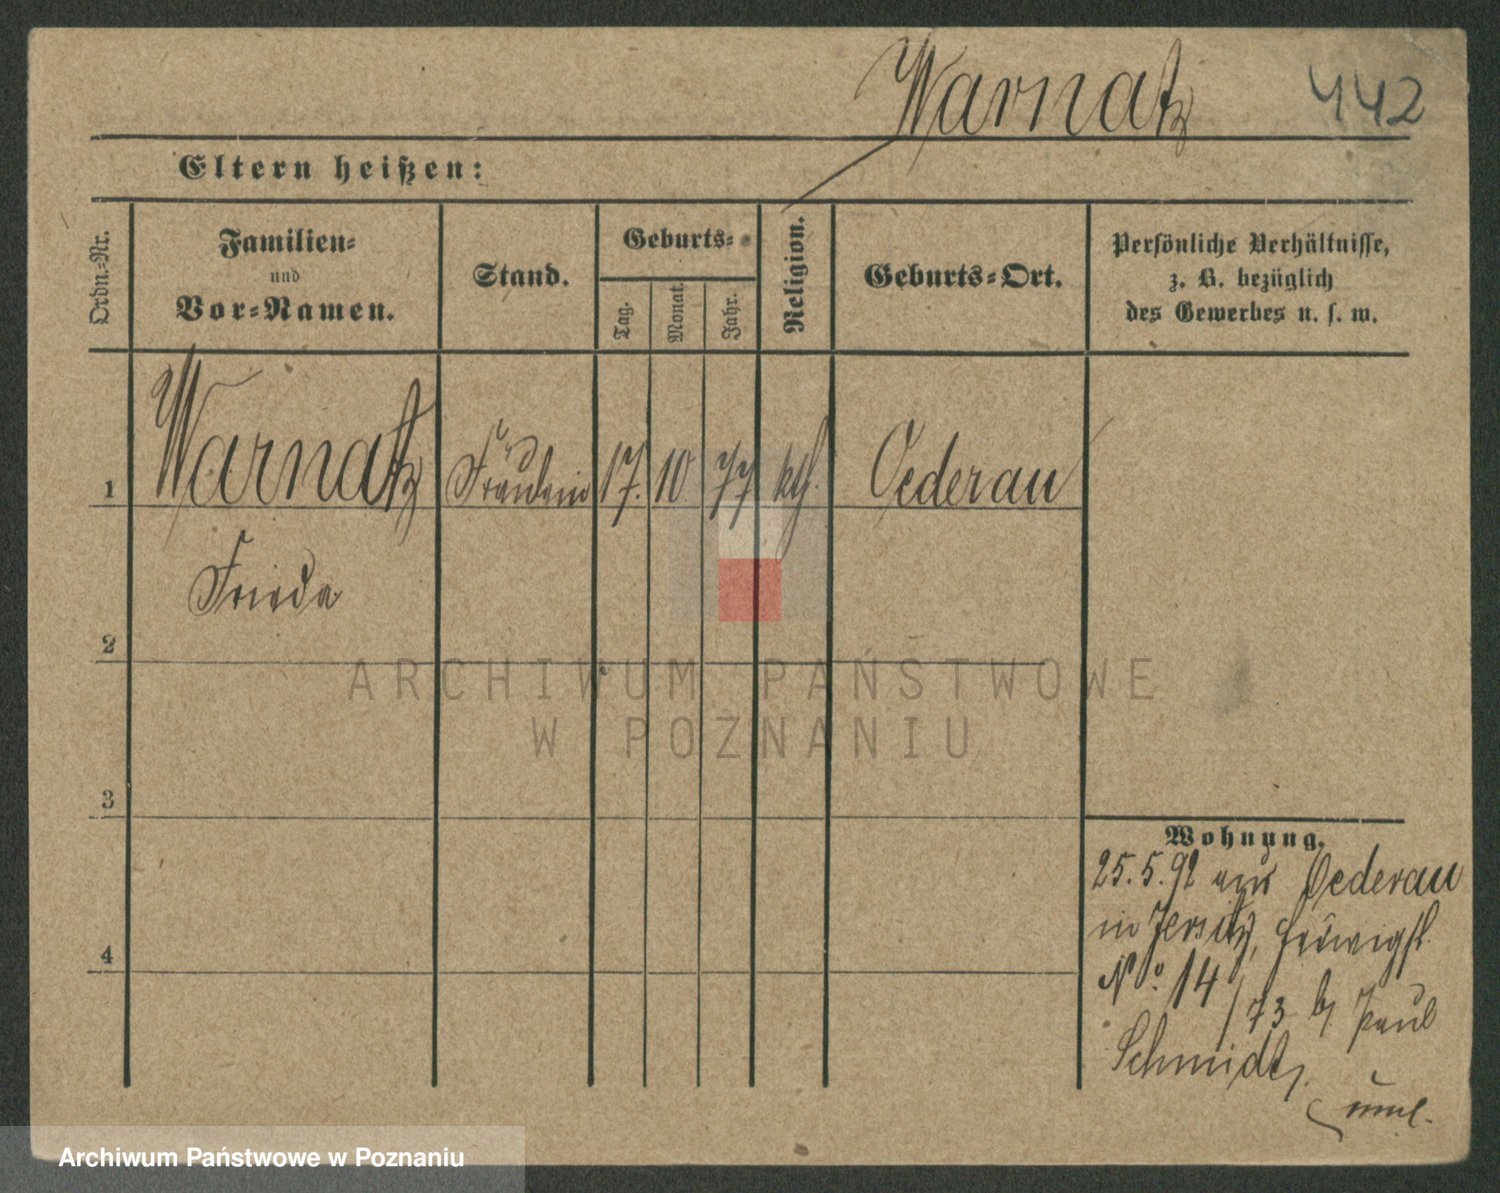 Warnatz 442
Eltern heißen:
Ordn.-Nr.
Familien-
und
Vor-Namen.
Stand.
Geburts-
Tag.
Monat.
Jahr.
Religion.
Geburts-Ort.
Persönliche Verhältnisse,
z. B. bezüglich
des Gewerbes u. s. w.
1 Warnatz Fräulein 17. 10 77 kth. Oederau
Frieda
2
3
4
Wohnung.
25.5.92 aus Oederau
in Jersitz, Hedwigst.
No. 14 /73 b/ Paul
Schmidt,
ARCHIWUM PAŃSTWOWE
W POZNANIU
Archiwum Państwowe w Poznaniu